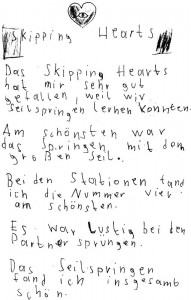 Skipping Hearts
Das Skipping Hearts
hat mir sehr gut
gefallen, weil wir
seilspringen lernen konnten.
Am schönsten war
das springen mit dem
großen Seil.
Bei den Stationen fand
ich die Nummer vier
am schönsten.
Es war Lustig bei den
Partner sprüngen.
Das Seilspringen
fand ich insgesamb
schön.